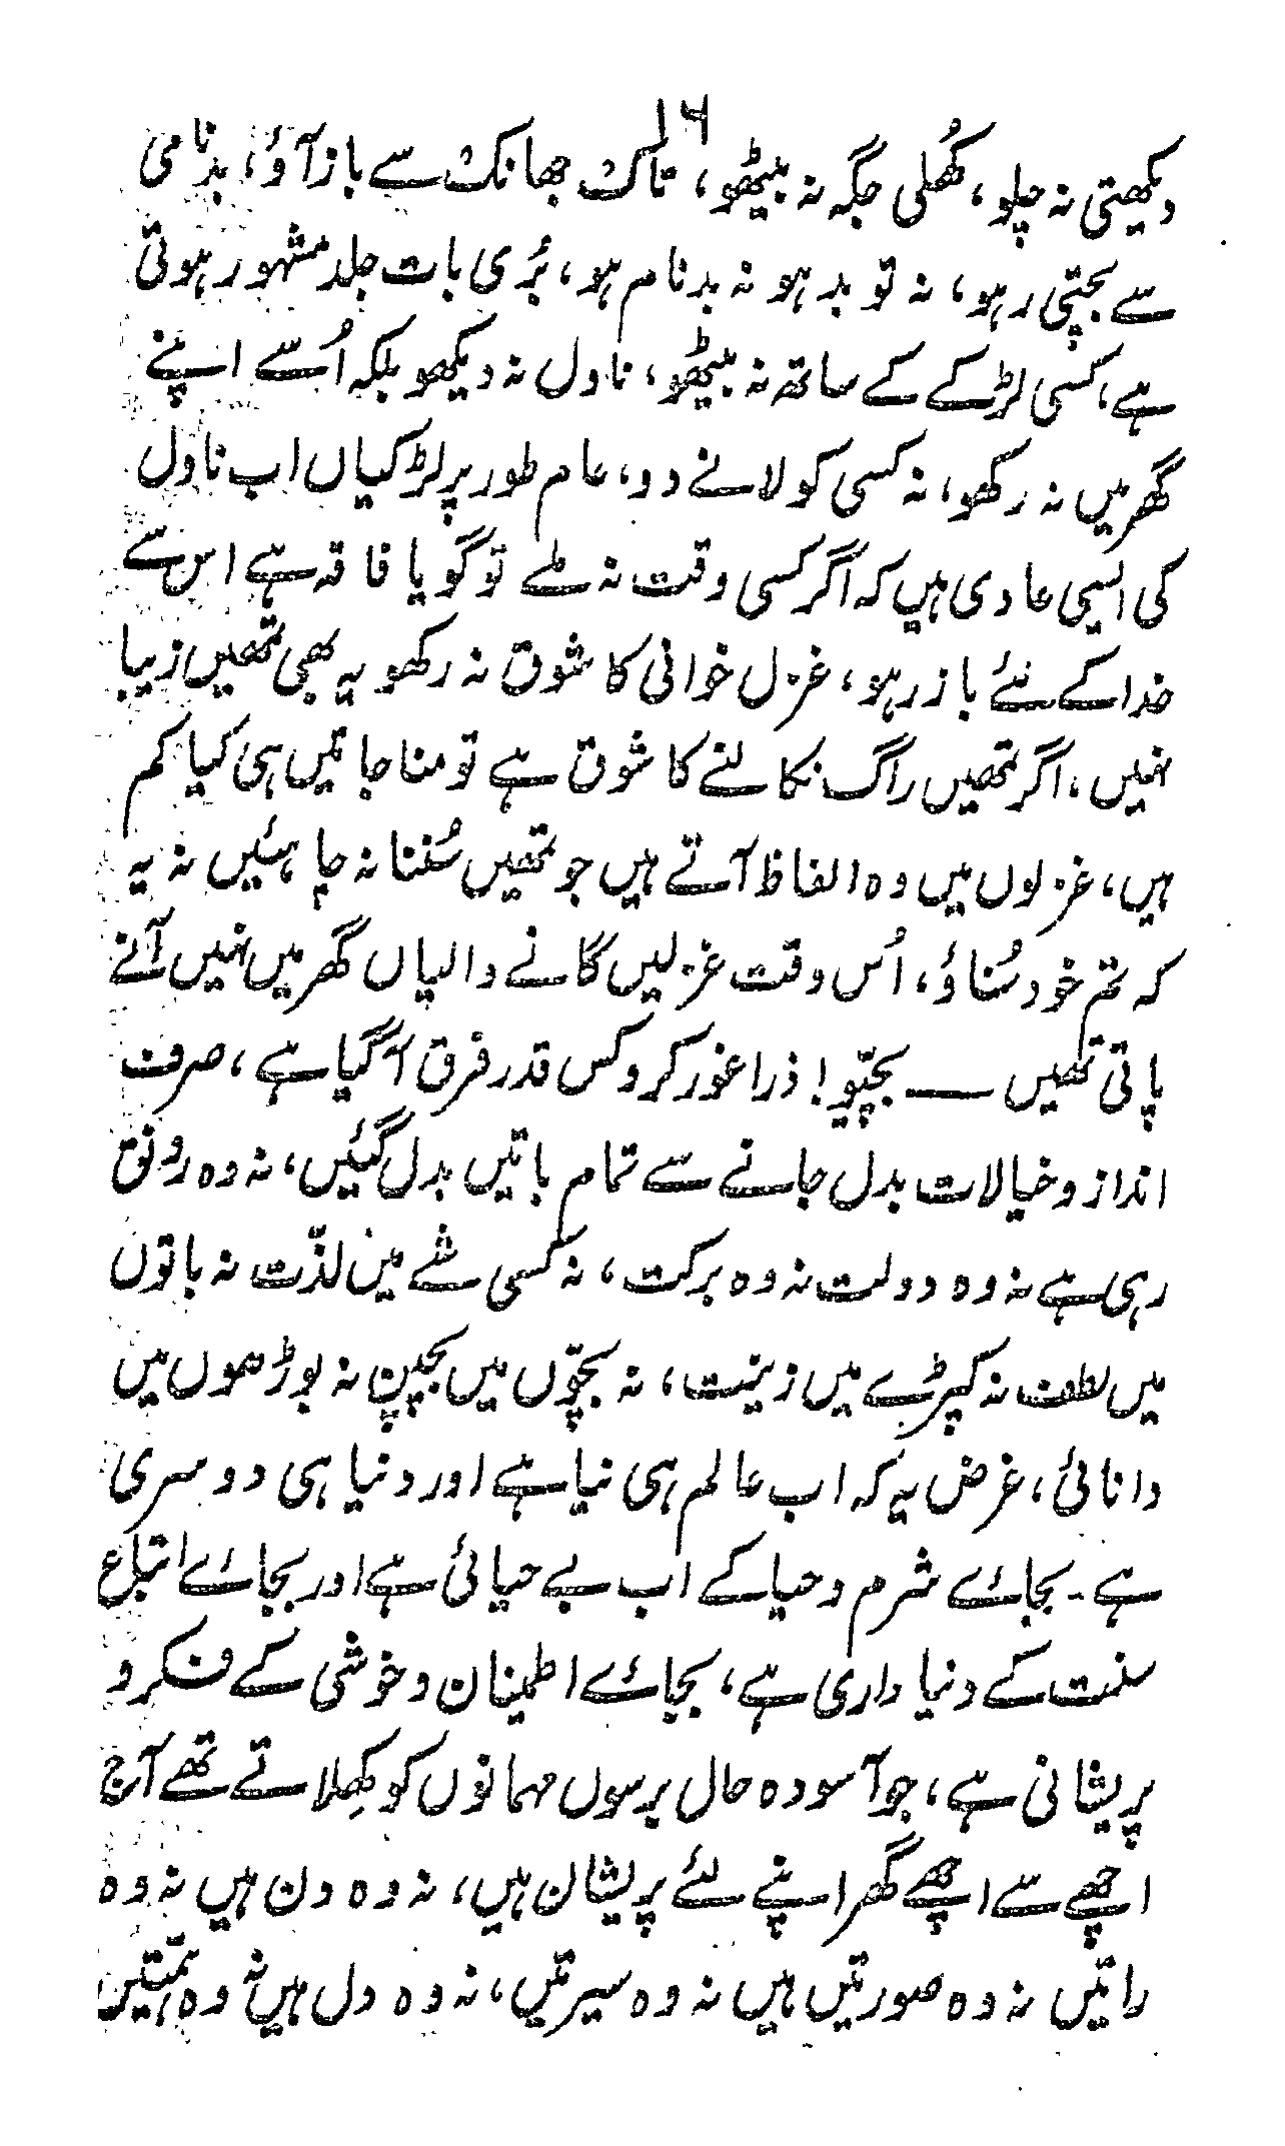 ۱۶
دیکھتی نہ چلو، کھُلی جگہ نہ بیٹھو، تاک جھانک سے باز آؤ، بدنامی
سے بچتی رہو، نہ تو بد ہو نہ بدنام ہو، بُری بات جلد مشہور ہوتی
ہے، کسی لڑکے کے ساتھ نہ بیٹھو، ناول نہ دیکھو بلکہ اُسے اپنے
گھر میں نہ رکھو، نہ کسی کو لانے دو، عام طور پر لڑکیاں اب ناول
کی ایسی عادی ہیں کہ اگر کسی وقت نہ ملے تو گویا فاقہ ہے اس سے
خدا کے لئے باز رہو، غزل خوانی کا شوق نہ رکھو یہ بھی تمھیں زیبا
نہیں، اگر تمھیں راگ نکالنے کا شوق ہے تو مناجاتیں ہی کیا کم
ہیں، غزلوں میں وہ الفاظ آتے ہیں جو تمھیں سُننا نہ چاہئیں نہ یہ
کہ تم خود سُناؤ، اُس وقت غزلیں گانے والیاں گھر میں نہیں آنے
پاتی تھیں — بچّیو! ذرا غور کرو کس قدر فرق آگیا ہے، صرف
انداز و خیالات بدل جانے سے تمام باتیں بدل گئیں، نہ وہ رونق
رہی ہے نہ وہ دولت نہ وہ برکت، نہ کسی شے میں لذّت نہ باتوں
میں لطف نہ کپڑے میں زینت، نہ بچّوں میں بچپن نہ بوڑھوں میں
دانائی، غرض یہ کہ اب عالم ہی نیا ہے اور دنیا ہی دوسری
ہے۔ بجائے شرم و حیا کے اب بے حیائی ہے اور بجائے اتباع
سنت کے دنیاداری ہے، بجائے اطمینان و خوشی کے فکر و
پریشانی ہے، جو آسودہ حال برسوں مہمانوں کو کھِلاتے تھے آج
اچھے سے اچھے گھر اپنے لئے پریشان ہیں، نہ وہ دن ہیں نہ وہ
راتیں نہ وہ صورتیں ہیں نہ وہ سیرتیں، نہ وہ دل ہیں نہ وہ ہمّتیں